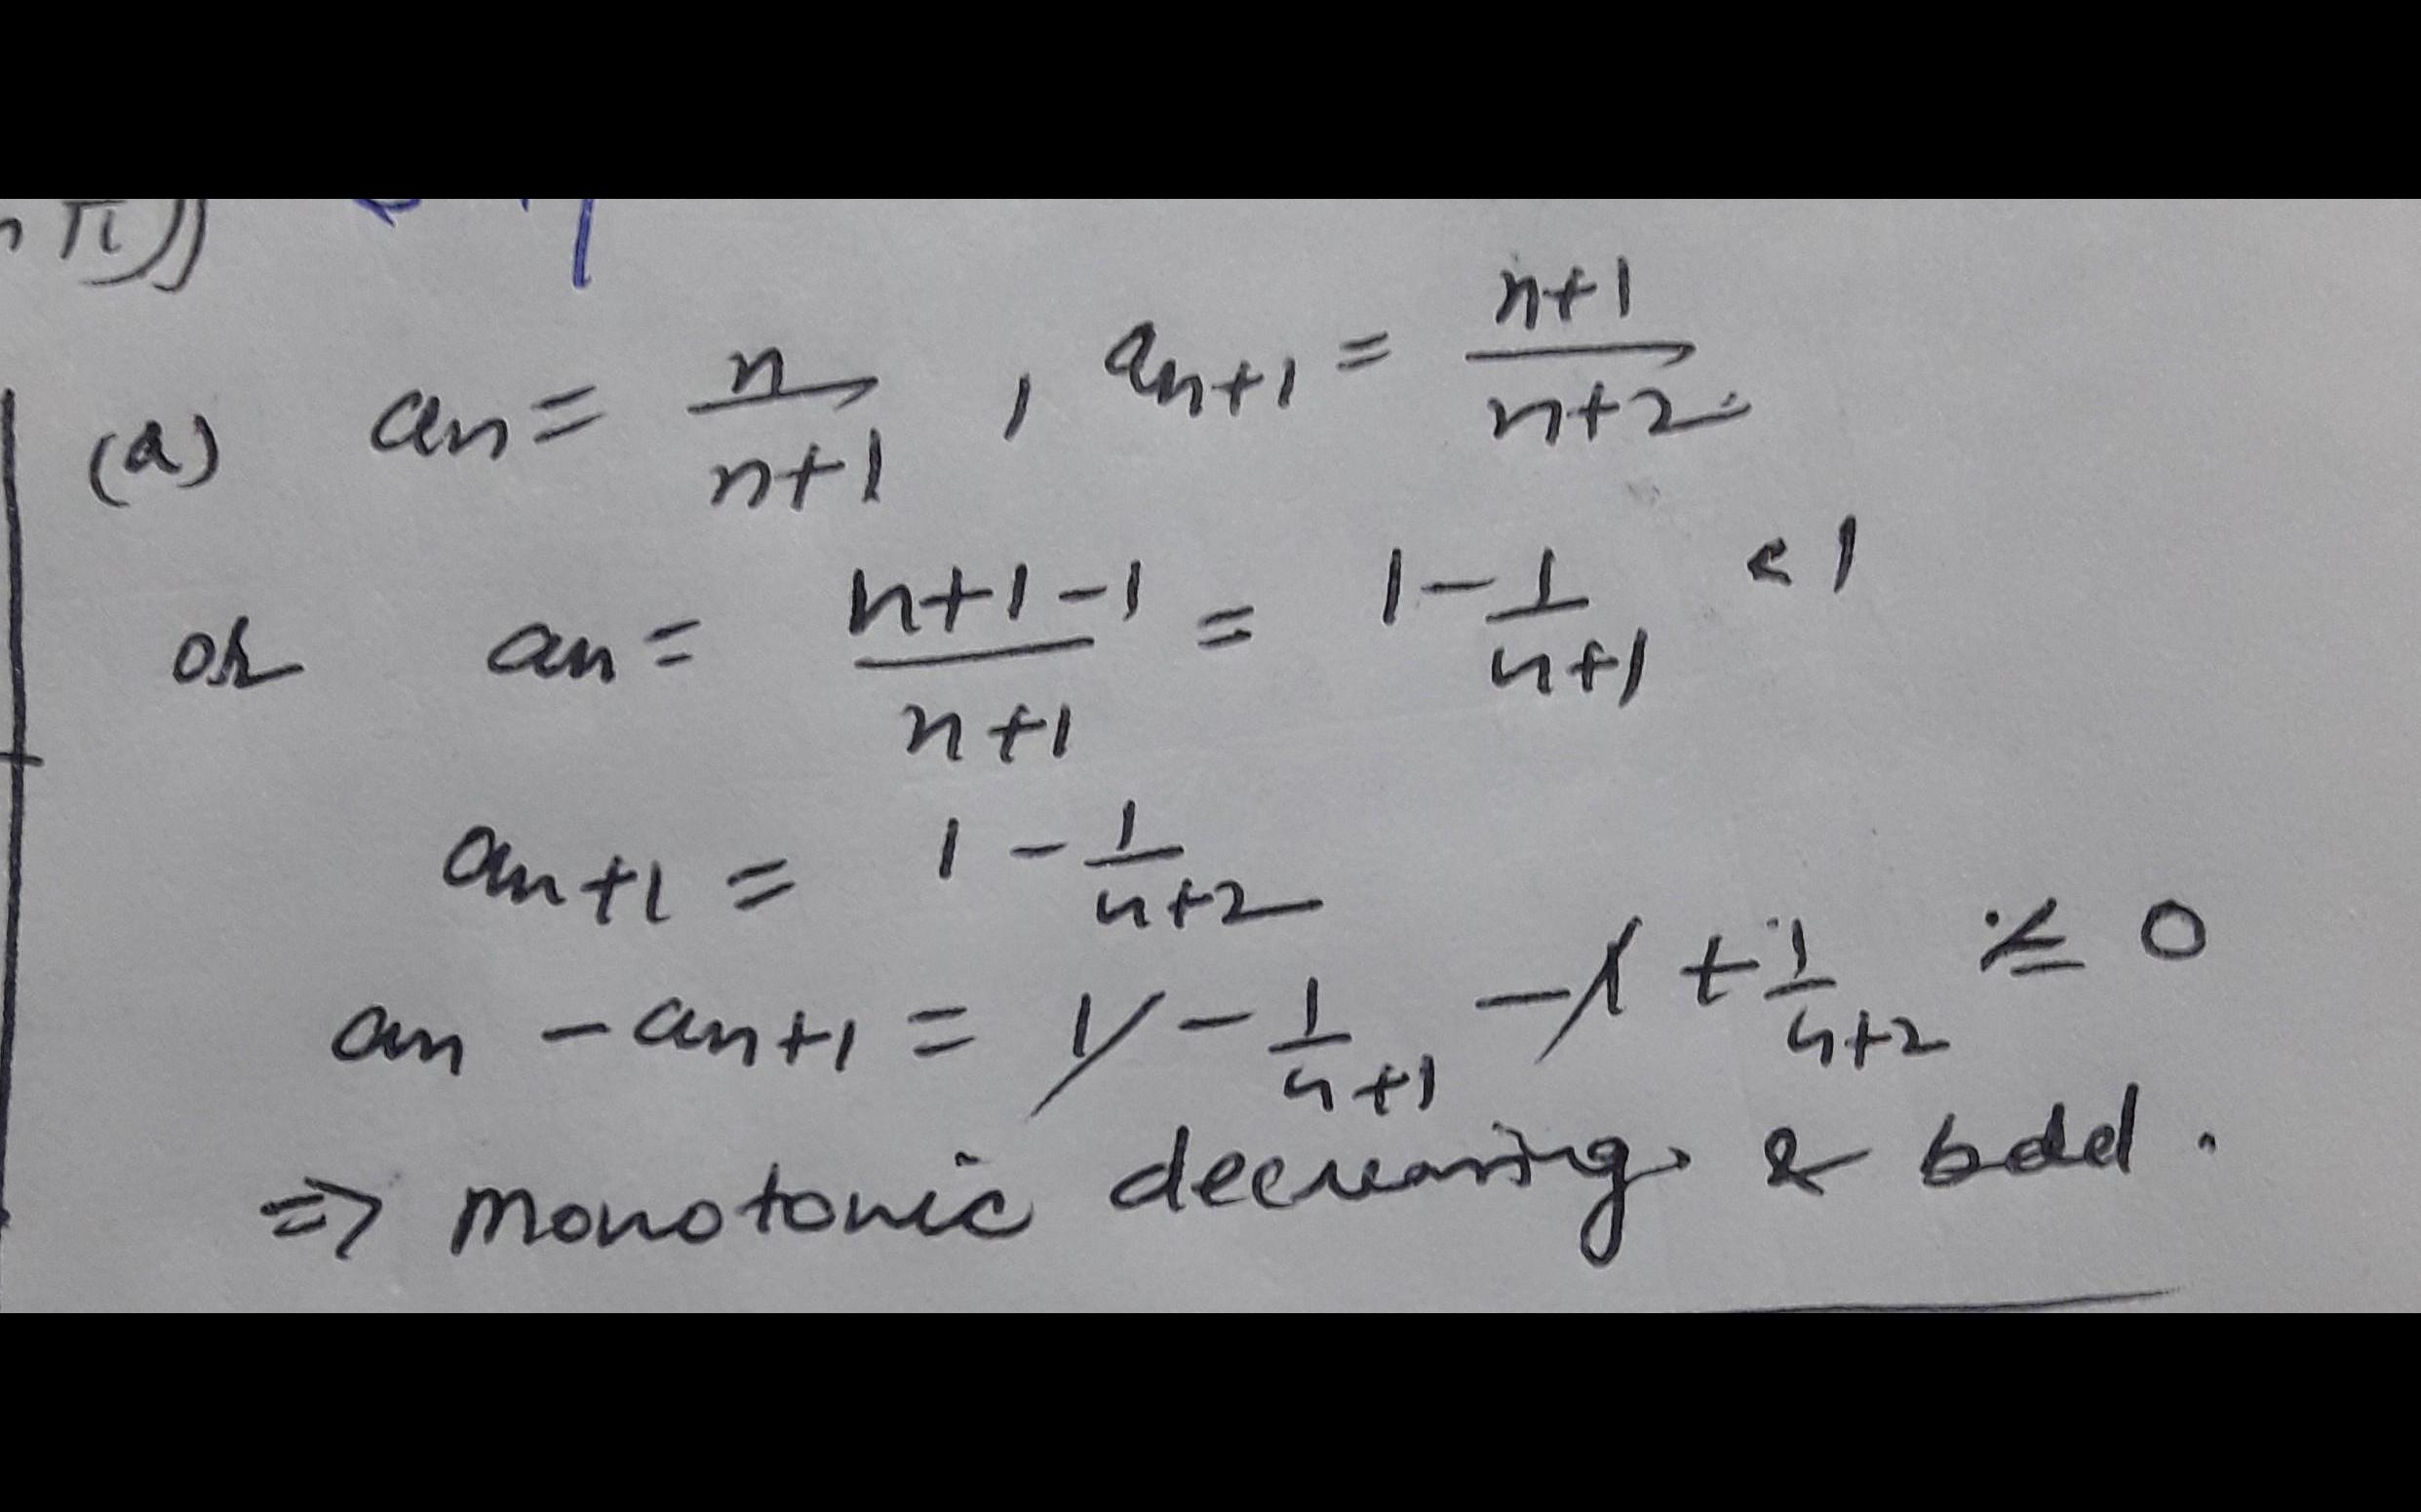 nπ)]
(a) an = n/(n+1) , an+1 = (n+1)/(n+2).
or an = (n+1-1)/(n+1) = 1 - 1/(n+1) < 1
an+1 = 1 - 1/(n+2)
an - an+1 = 1 - 1/(n+1) - 1 + 1/(n+2) ≤ 0
⇒ monotonic decreasing & bdd.